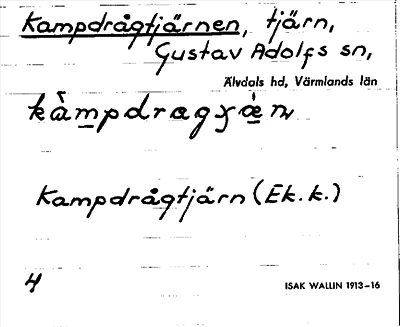 Kampdrågtjärnen, tjärn,
Gustav Adolfs sn,
Älvdals hd, Värmlands län
Kampdrågtjärn (Ek. k.)
4
ISAK WALLIN 1913–16